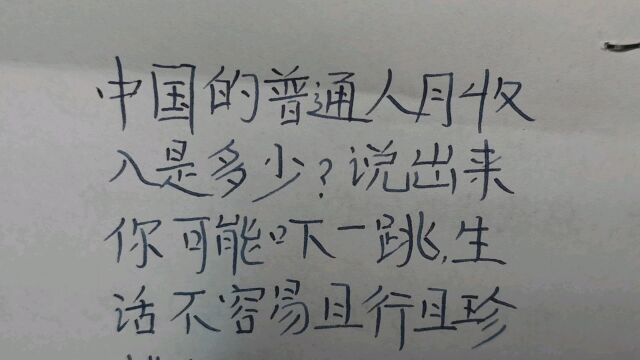 中国的普通人月收
入是多少？说出来
你可能吓一跳，生
话不容易且行且珍